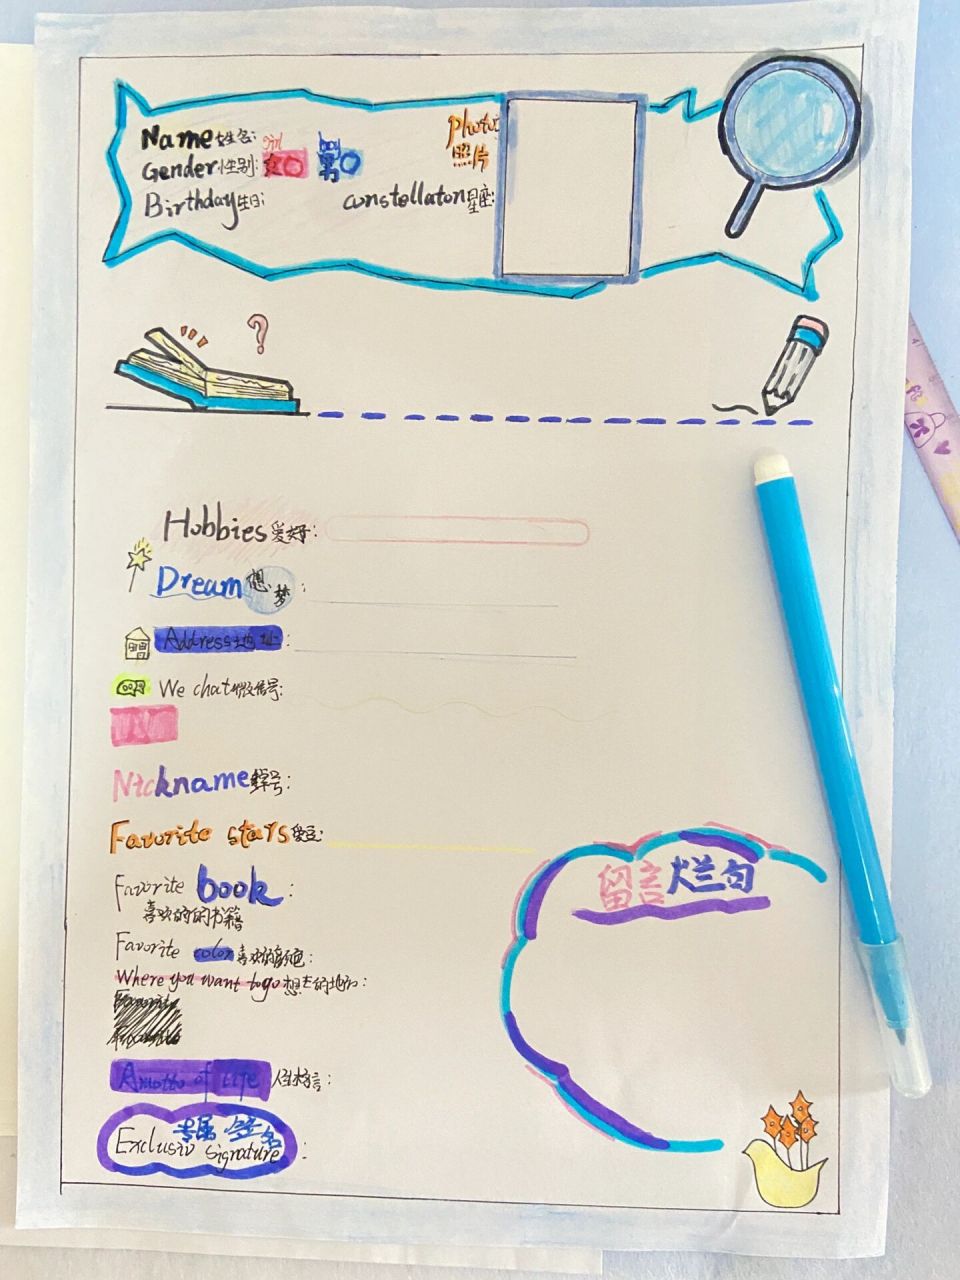 Name姓名:
girl boy
Gender性别: 女 男
Photo
照片
Birthday生日:
constellaton星座:
?
Hobbies爱好:
Dream梦想:
Address地址:
We chat微信号:
Nickname绰号:
Favorite stars爱豆:
Favorite book:
喜欢的的书籍
Favorite color喜欢的颜色:
Where you want to go想去的地方:
A motto of life 人生格言:
专属签名
Exclusiv signature:
留言烂句